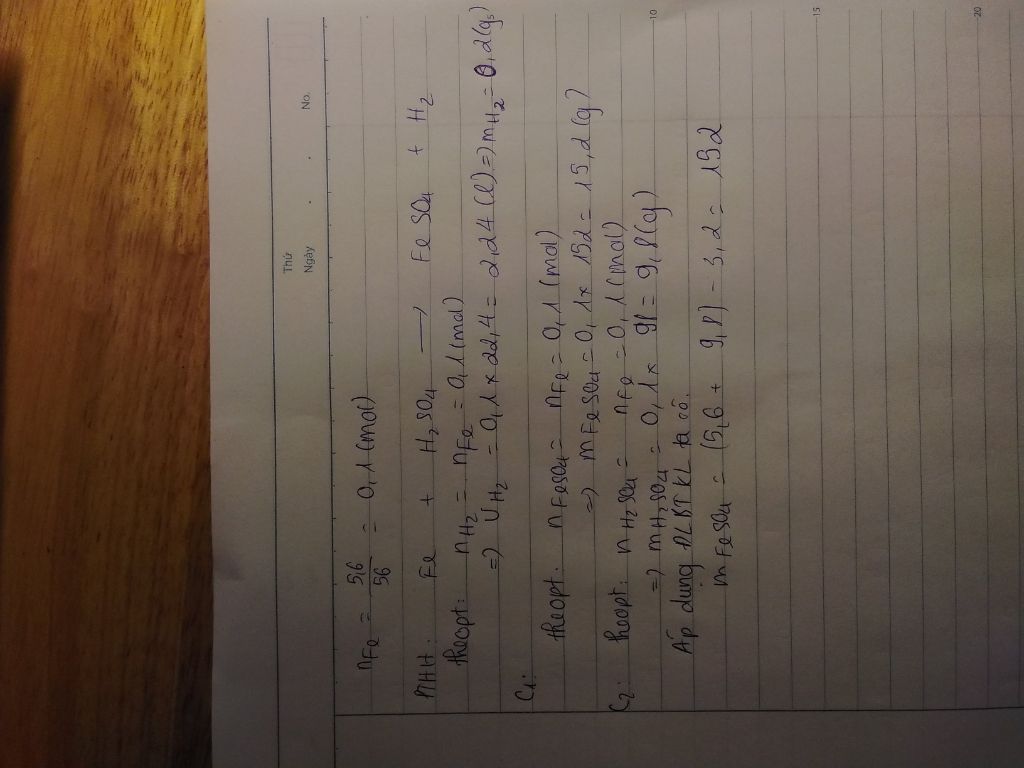 Thứ
Ngày . . No.
nFe = 5,6 / 56 = 0,1 (mol)
PTHH: Fe + H2SO4 → FeSO4 + H2
theopt: nH2 = nFe = 0,1 (mol)
=) VH2 = 0,1 x 22,4 = 2,24 (l) =) mH2 = 0,2 (g)
C1:
theopt: nFeSO4 = nFe = 0,1 (mol)
=) mFeSO4 = 0,1 x 152 = 15,2 (g)
C2: theopt: nH2SO4 = nFe = 0,1 (mol)
=) mH2SO4 = 0,1 x 98 = 9,8 (g)
Áp dụng ĐLBTKL ta có.
mFeSO4 = (5,6 + 9,8) - 3,2 = 152
10
15
20